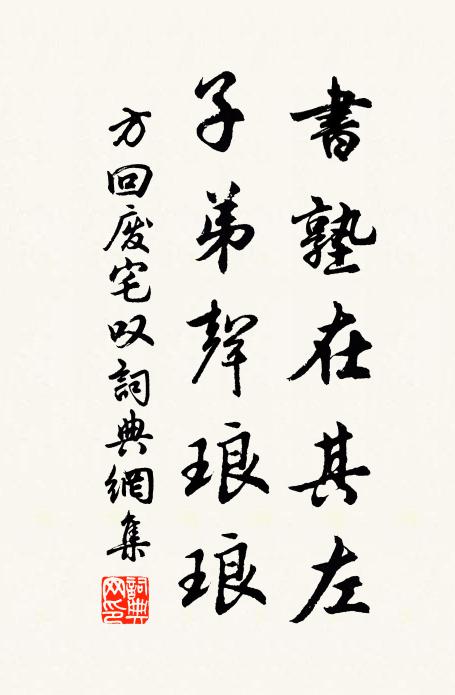 書塾在其左
子弟聲琅琅
方回废宅叹詞典網集
詞典網印